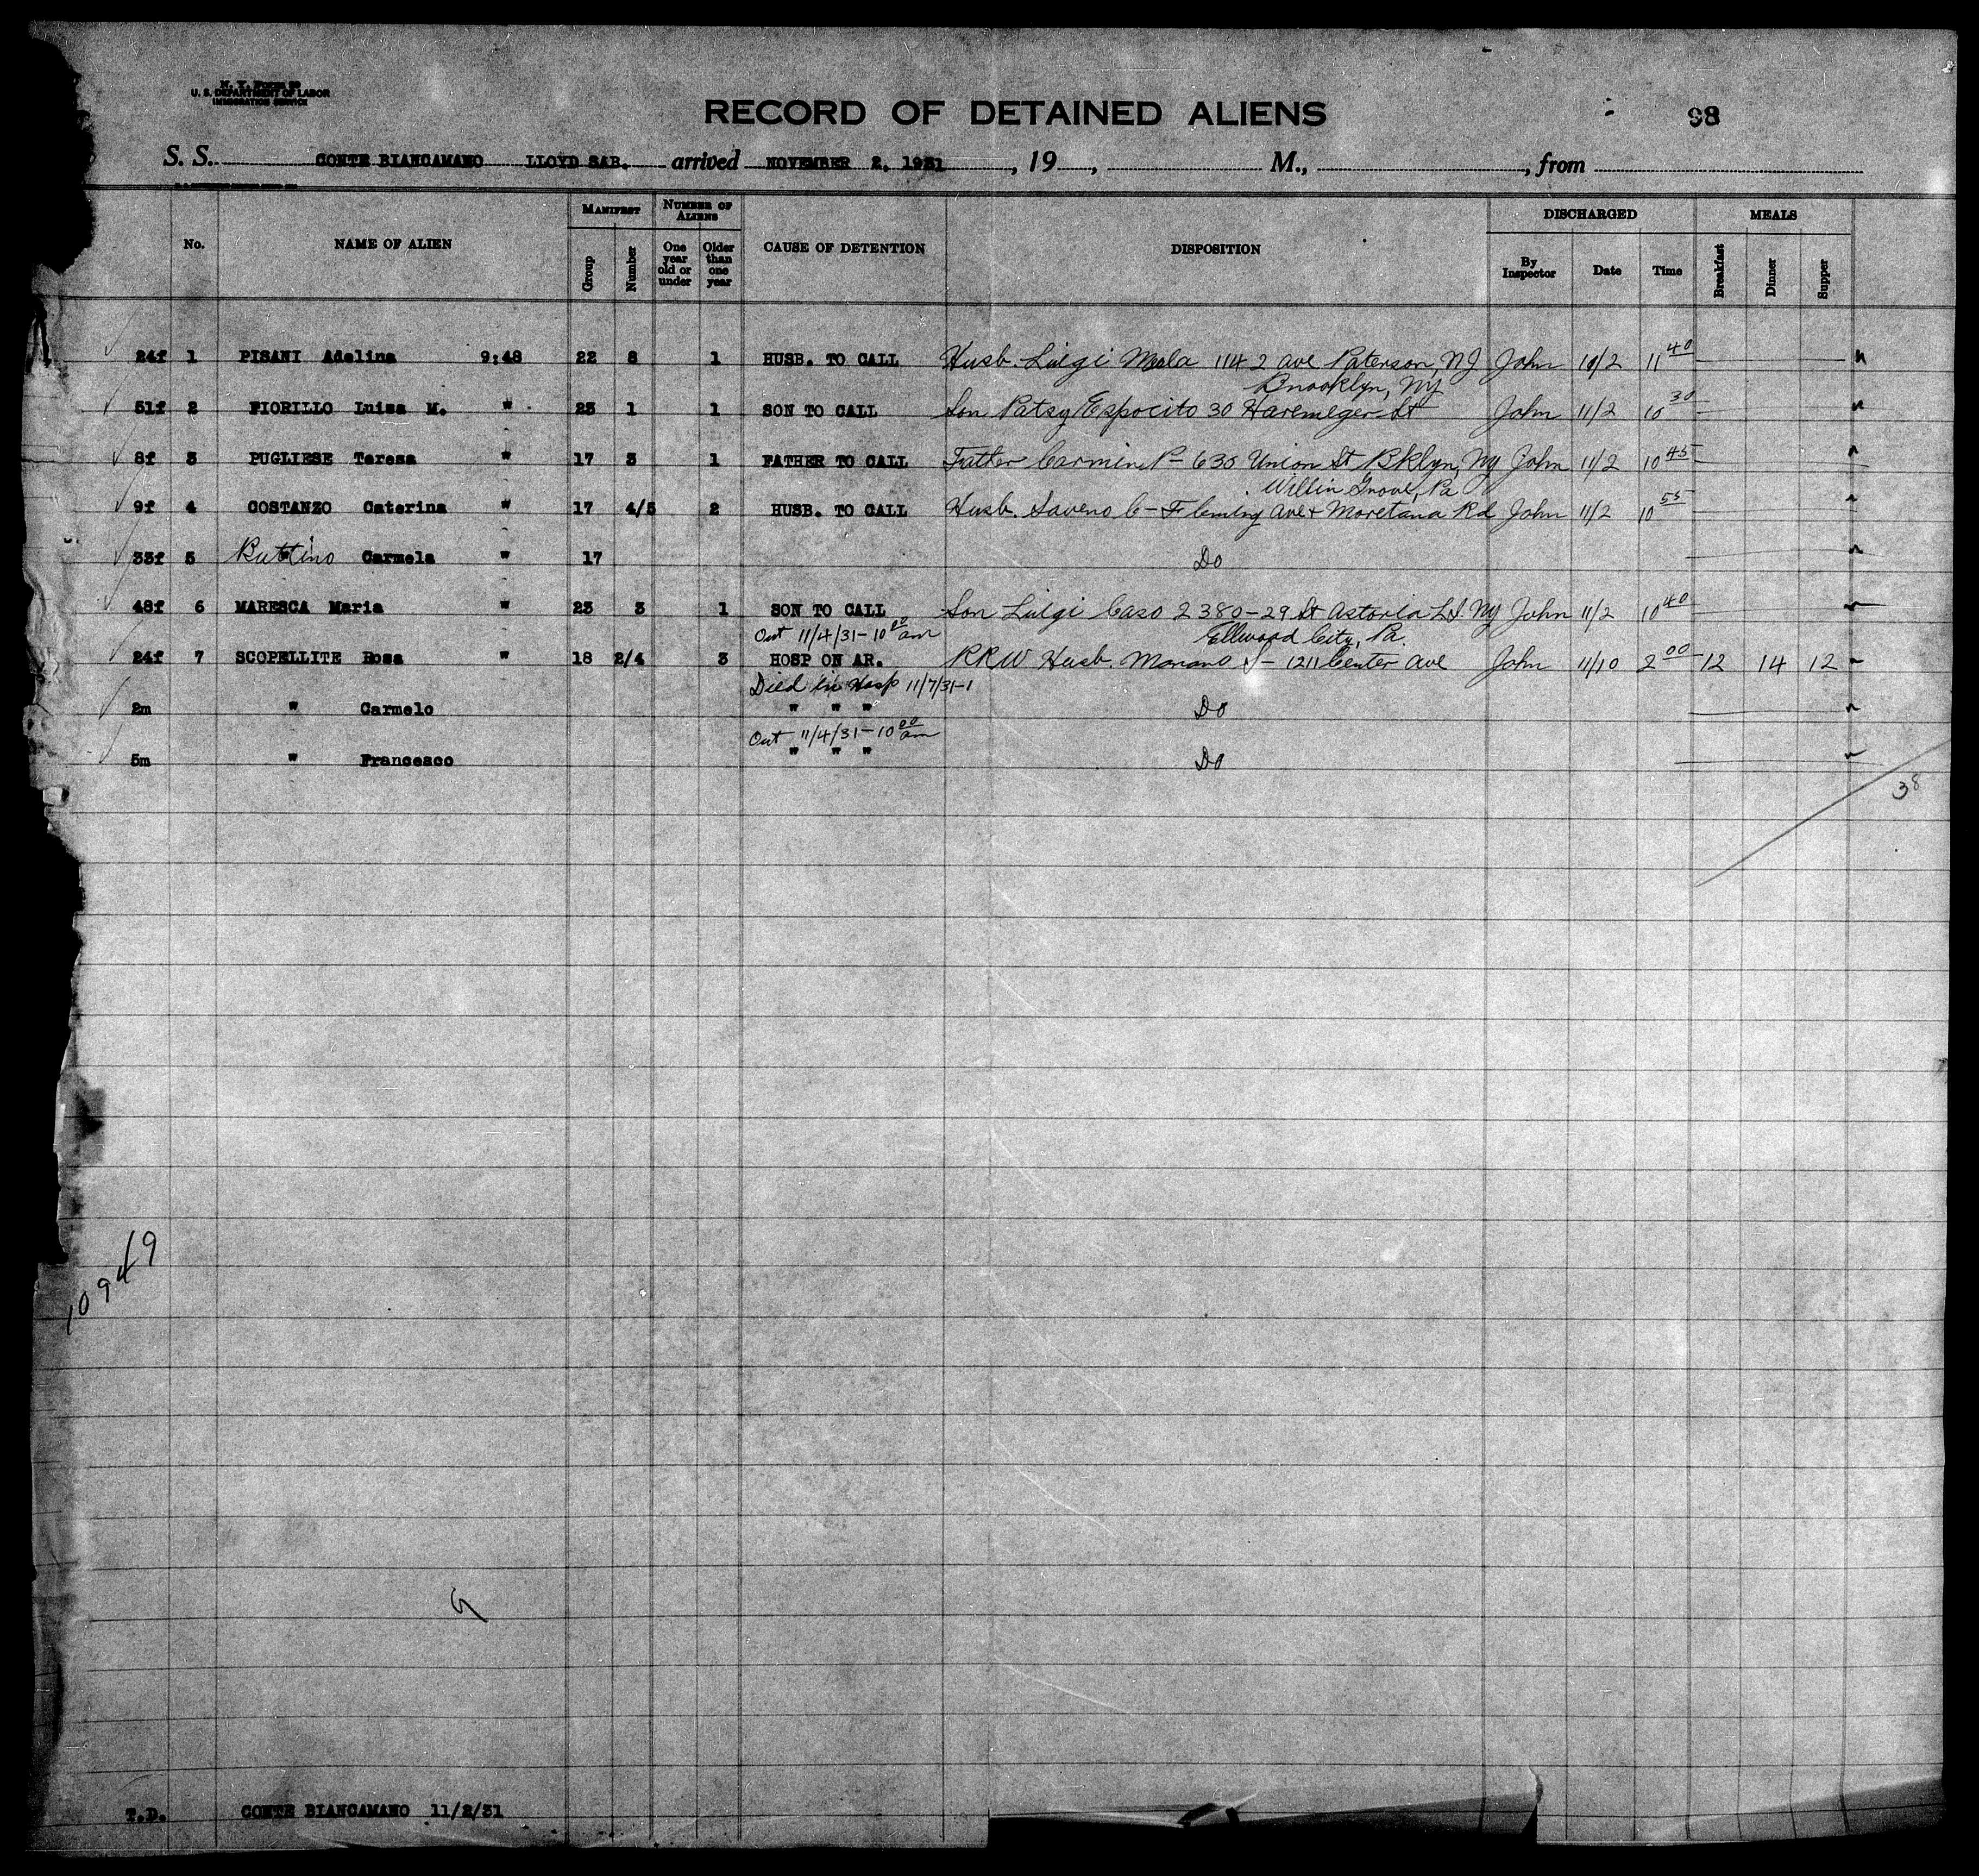 N. Y. Form 99
U. S. DEPARTMENT OF LABOR
IMMIGRATION SERVICE
RECORD OF DETAINED ALIENS
98
S. S. CONTE BIANCAMANO LLOYD SAB. arrived NOVEMBER 2, 1931, 19 , M., , from
No. NAME OF ALIEN MANIFEST Group Number NUMBER OF ALIENS One year old or under Older than one year CAUSE OF DETENTION DISPOSITION DISCHARGED By Inspector Date Time MEALS Breakfast Dinner Supper
24f 1 PISANI Adelina 9:48 22 8 1 HUSB. TO CALL Husb. Luigi 1142 ave Paterson, NJ John 10/2 11 40
Brooklyn, NY
51f 2 FIORILLO Luisa M. " 23 1 1 SON TO CALL Son Patsy Espocito 30 Havemeger St John 11/2 10 30
8f 3 PUGLIESE Teresa " 17 3 1 FATHER TO CALL Father Carmine P- 630 Union St Bklyn, NY John 11/2 10 45
Willin Grove, Pa
9f 4 COSTANZO Caterina " 17 4/5 2 HUSB. TO CALL Husb. Saveno C- Fleming Ave + Moretana Rd John 11/2 10 55
33f 5 Buttino Carmela " 17 Do
48f 6 MARESCA Maria " 23 3 1 SON TO CALL Son Luigi Caso 2380-29 St Astoria L.I. NY John 11/2 10 40
Out 11/4/31-10 00 am Ellwood City, Pa.
24f 7 SCOPELLITE Rosa " 18 2/4 3 HOSP ON AR. RRW Husb. Mariano S- 1211 Center Ave John 11/10 2 00 12 14 12
Died in Hosp 11/7/31-1
2m " Carmelo " " " Do
Out 11/4/31-10 00 am
5m " Francesco " " " Do
38
109419
T.D. CONTE BIANCAMANO 11/2/31